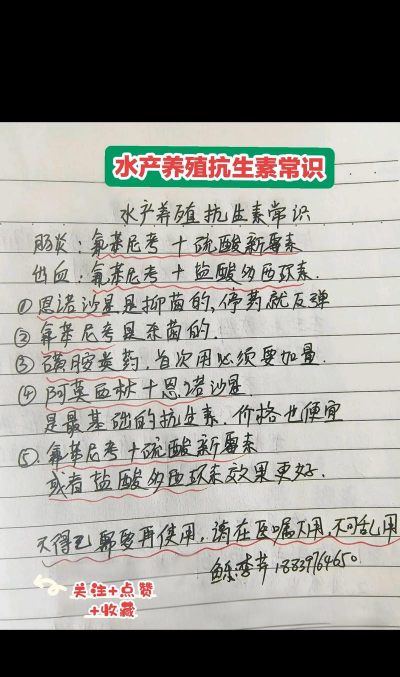 水产养殖抗生素常识
水产养殖抗生素常识
肠炎：氟苯尼考+硫酸新霉素
出血：氟苯尼考+盐酸多西环素.
①恩诺沙星是抑菌的,停药就反弹
②氟苯尼考是杀菌的.
③磺胺类药,首次用必须要加量.
④阿莫西林+恩诺沙星
是最基础的抗生素.价格也便宜
⑤.氟苯尼考+硫酸新霉素
或者盐酸多西环素效果更好.
不得已 再使用,请在医嘱下用,不可乱用
关注+点赞
+收藏